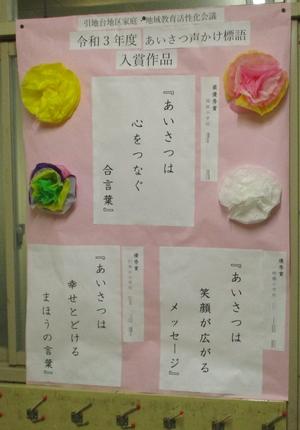 引地台地区家庭・地域教育活性化会議
令和3年度 あいさつ声かけ標語
入賞作品
最優秀賞
『あいさつは
心をつなぐ
合言葉』
優秀賞
『あいさつは
笑顔が広がる
メッセージ』
優秀賞
『あいさつは
幸せとどける
まほうの言葉』